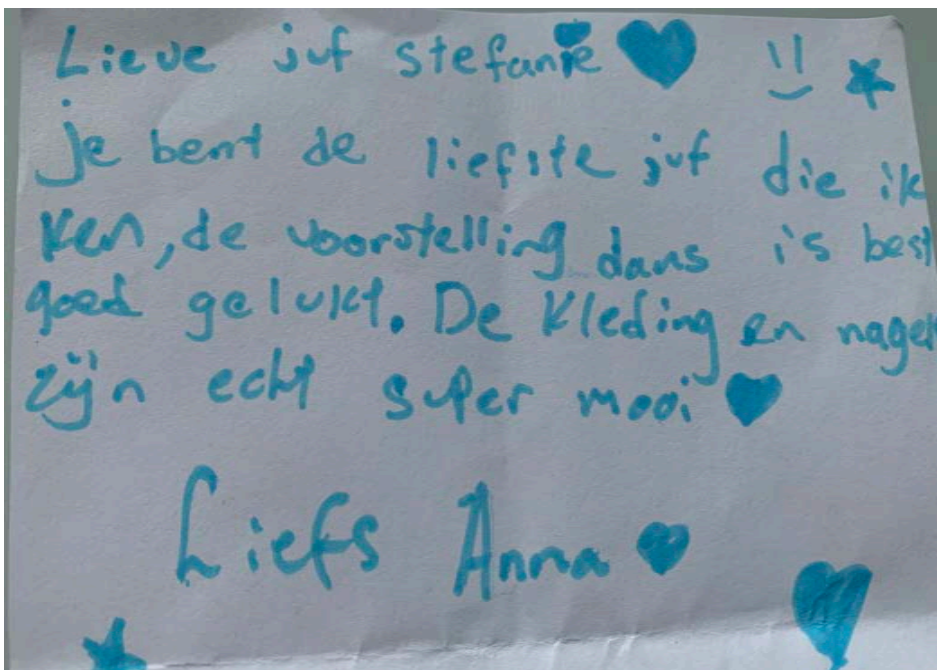 Lieve juf stefanie
je bent de liefste juf die ik
ken, de voorstelling dans is best
goed gelukt. De kleding en nagels
zijn echt super mooi
Liefs Anna